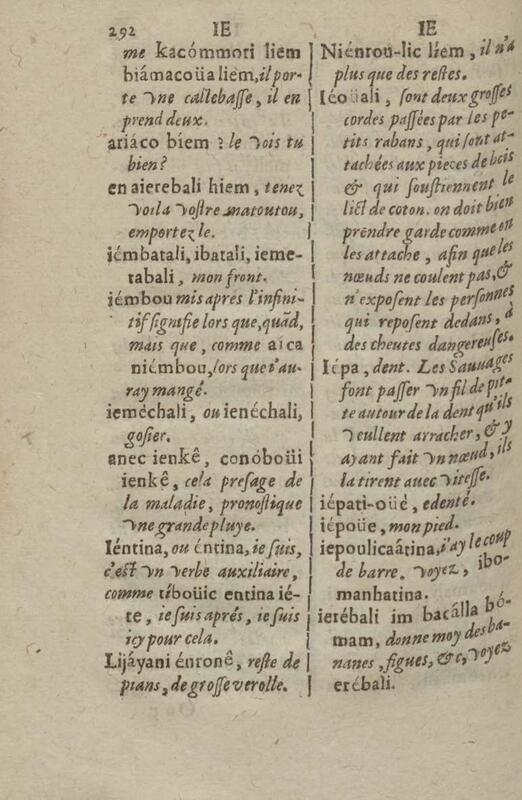 292 IE IE
me kacómmori liem
biámacoüa liem, il por-
te vne callebasse, il en
prend deux.
ariáco biem ? le vois tu
bien ?
en aierebali hiem, tenez
voila vostre matoutou,
emportez le.
iémbatali, ibatali, ieme-
tabali, mon front.
iémbou mis aprés l'infini-
tif signifie lors que, quãd,
mais que, comme aica
niémbou, lors que i'au-
ray mangé.
iemèchali, ou ienéchali,
gosier.
anec ienkê, conóboüi
ienkê, cela presage de
la maladie, pronostique
vne grande pluye.
Iéntina, ou éntina, ie suis,
c'est vn verbe auxiliaire,
comme tiboüic entina ié-
te, ie suis aprés, ie suis
icy pour cela.
Lijáyani énronê, reste de
pians, de grosse verolle.
Niénrou-lic líem, il n'a
plus que des restes.
Iéoüali, sont deux grosses
cordes passées par les pe-
tits rabans, qui sont at-
tachées aux pieces de bois
& qui soustiennent le
lict de coton. on doit bien
prendre garde comme on
les attache, afin que les
nœuds ne coulent pas, &
n'exposent les personnes
qui reposent dedans, à
des cheutes dangereuses.
Iépa, dent. Les Sauuages
font passer vn fil de pit-
te autour de la dent qu'ils
veullent arracher, & y
ayant fait vn nœud, ils
la tirent auec vitesse.
iépati-oüé, edenté.
iépoüe, mon pied.
iepoulicaátina, i'ay le coup
de barre. voyez, ibo-
manhatina.
ierébali im bacálla bó-
mam, donne moy des ba-
nanes, figues, &c, voyez
erébali.